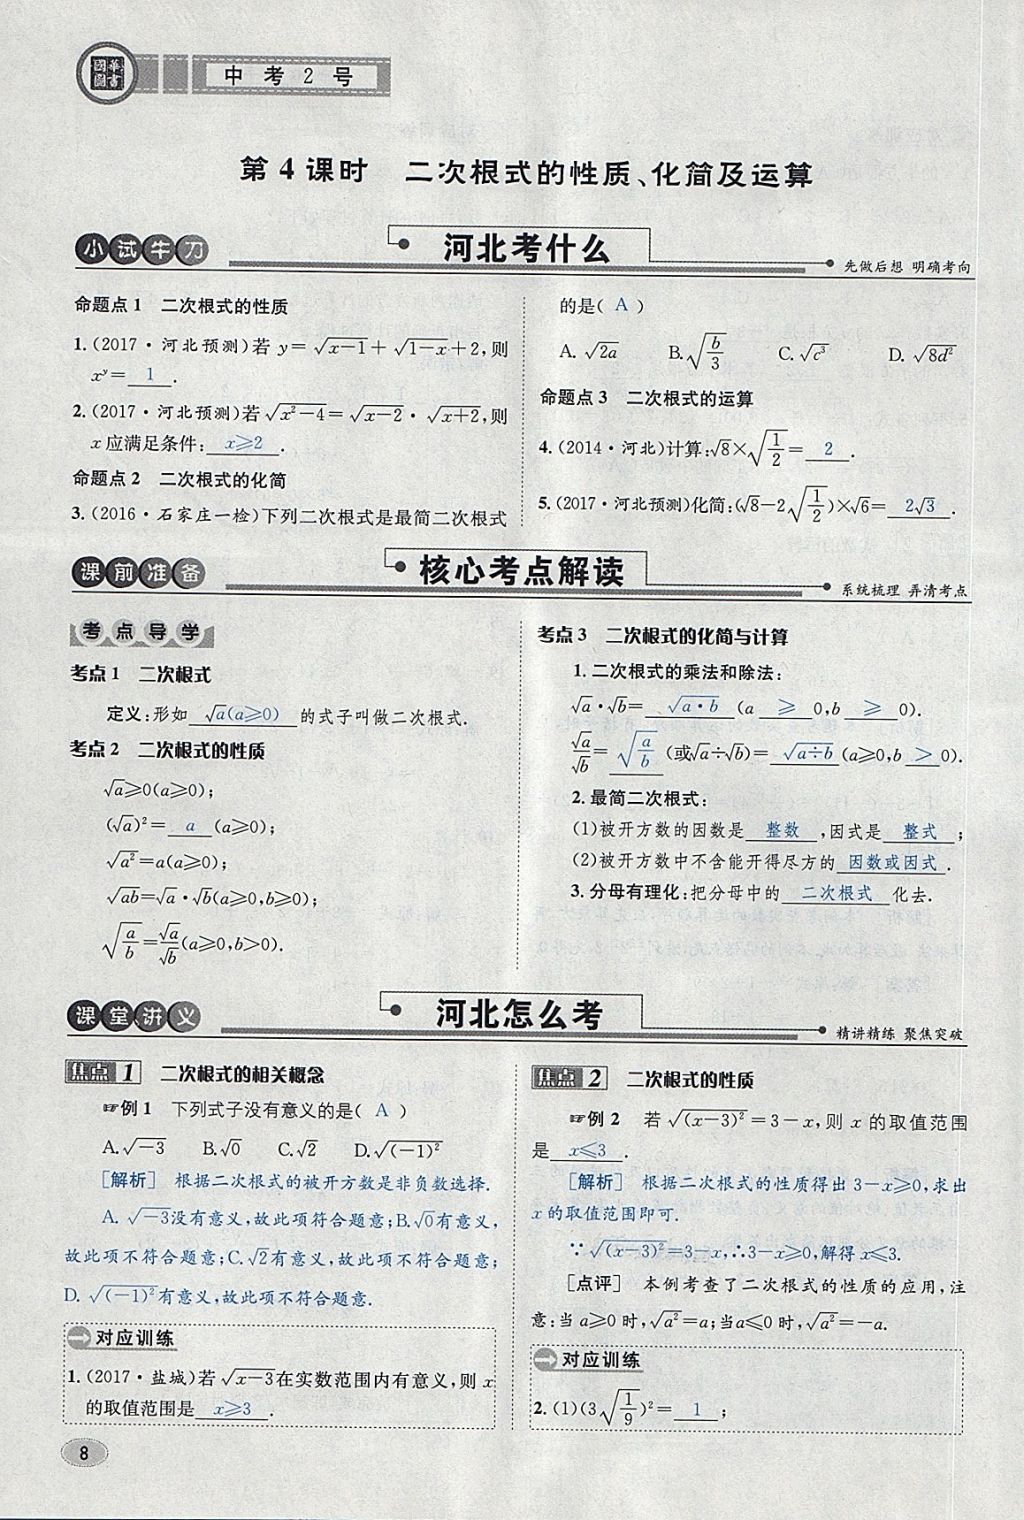 國華圖書
中考2号
第4课时 二次根式的性质、化简及运算
小试牛刀 河北考什么 先做后想 明确考向
命题点1 二次根式的性质
1.(2017·河北预测)若 y=√(x-1)+√(1-x)+2,则
x^y= 1 .
2.(2017·河北预测)若√(x²-4)=√(x-2)·√(x+2),则
x应满足条件: x≥2 .
命题点2 二次根式的化简
3.(2016·石家庄一检)下列二次根式是最简二次根式
的是( A )
A.√(2a) B.√(b/3) C.√(c³) D.√(8d²)
命题点3 二次根式的运算
4.(2014·河北)计算:√8×√(1/2)= 2 .
5.(2017·河北预测)化简:(√8-2√(1/2))×√6= 2√3 .
课前准备 核心考点解读 系统梳理 弄清考点
考点导学
考点1 二次根式
定义:形如 √a(a≥0) 的式子叫做二次根式.
考点2 二次根式的性质
√a≥0(a≥0);
(√a)²= a (a≥0);
√(a²)=a(a≥0);
√(ab)=√a·√b(a≥0,b≥0);
√(a/b)=√a/√b(a≥0,b>0).
考点3 二次根式的化简与计算
1.二次根式的乘法和除法:
√a·√b= √(a·b) (a ≥ 0,b ≥ 0).
√a/√b= √(a/b) (或√a÷√b)= √(a÷b) (a≥0,b > 0).
2.最简二次根式:
(1)被开方数的因数是 整数 ,因式是 整式 ;
(2)被开方数中不含能开得尽方的 因数或因式 .
3.分母有理化:把分母中的 二次根式 化去.
课堂讲义 河北怎么考 精讲精练 聚焦突破
焦点1 二次根式的相关概念
☞例1 下列式子没有意义的是( A )
A.√(-3) B.√0 C.√2 D.√((-1)²)
[解析] 根据二次根式的被开方数是非负数选择.
A.√(-3)没有意义,故此项符合题意;B.√0有意义,
故此项不符合题意;C.√2有意义,故此项不符合题意;
D.√((-1)²)有意义,故此项不符合题意.
对应训练
1.(2017·盐城)若√(x-3)在实数范围内有意义,则x
的取值范围是 x≥3 .
焦点2 二次根式的性质
☞例2 若√((x-3)²)=3-x,则x的取值范围
是 x≤3 .
[解析] 根据二次根式的性质得出3-x≥0,求出
x的取值范围即可.
∵√((x-3)²)=3-x,∴3-x≥0,解得x≤3.
[点评] 本例考查了二次根式的性质的应用,注
意:当a≥0时,√(a²)=a;当a≤0时,√(a²)=-a.
对应训练
2.(1)(3√(1/9))²= 1 ;
8